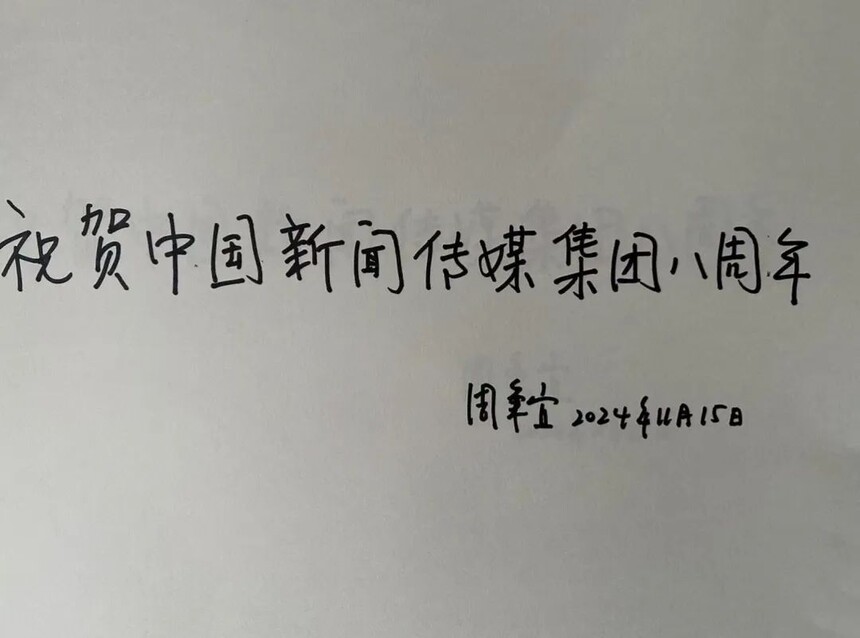 祝贺中国新闻传媒集团八周年
周年宜 2024年11月15日